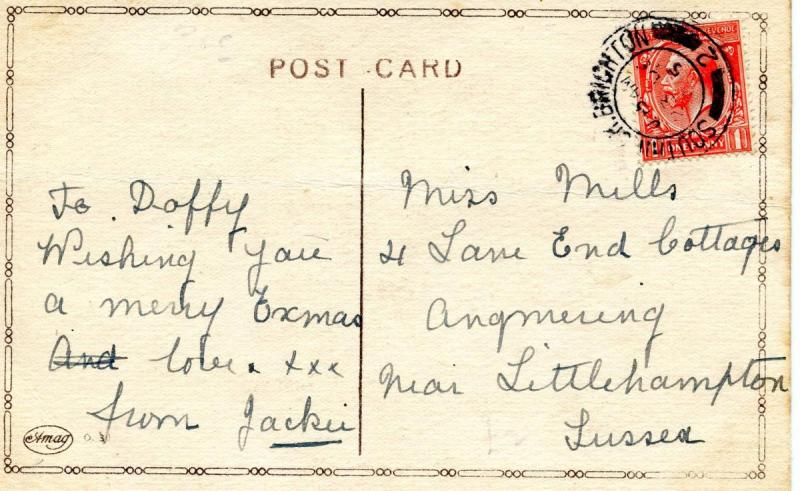 POST CARD
To Doffy
Wishing you
a merry Exmas
And love. xxx
from Jackie
Miss Mills
4 Lane End Cottages
Angmering
Near Littlehampton
Sussex
BRIGHTON
2
REVENUE
Amag